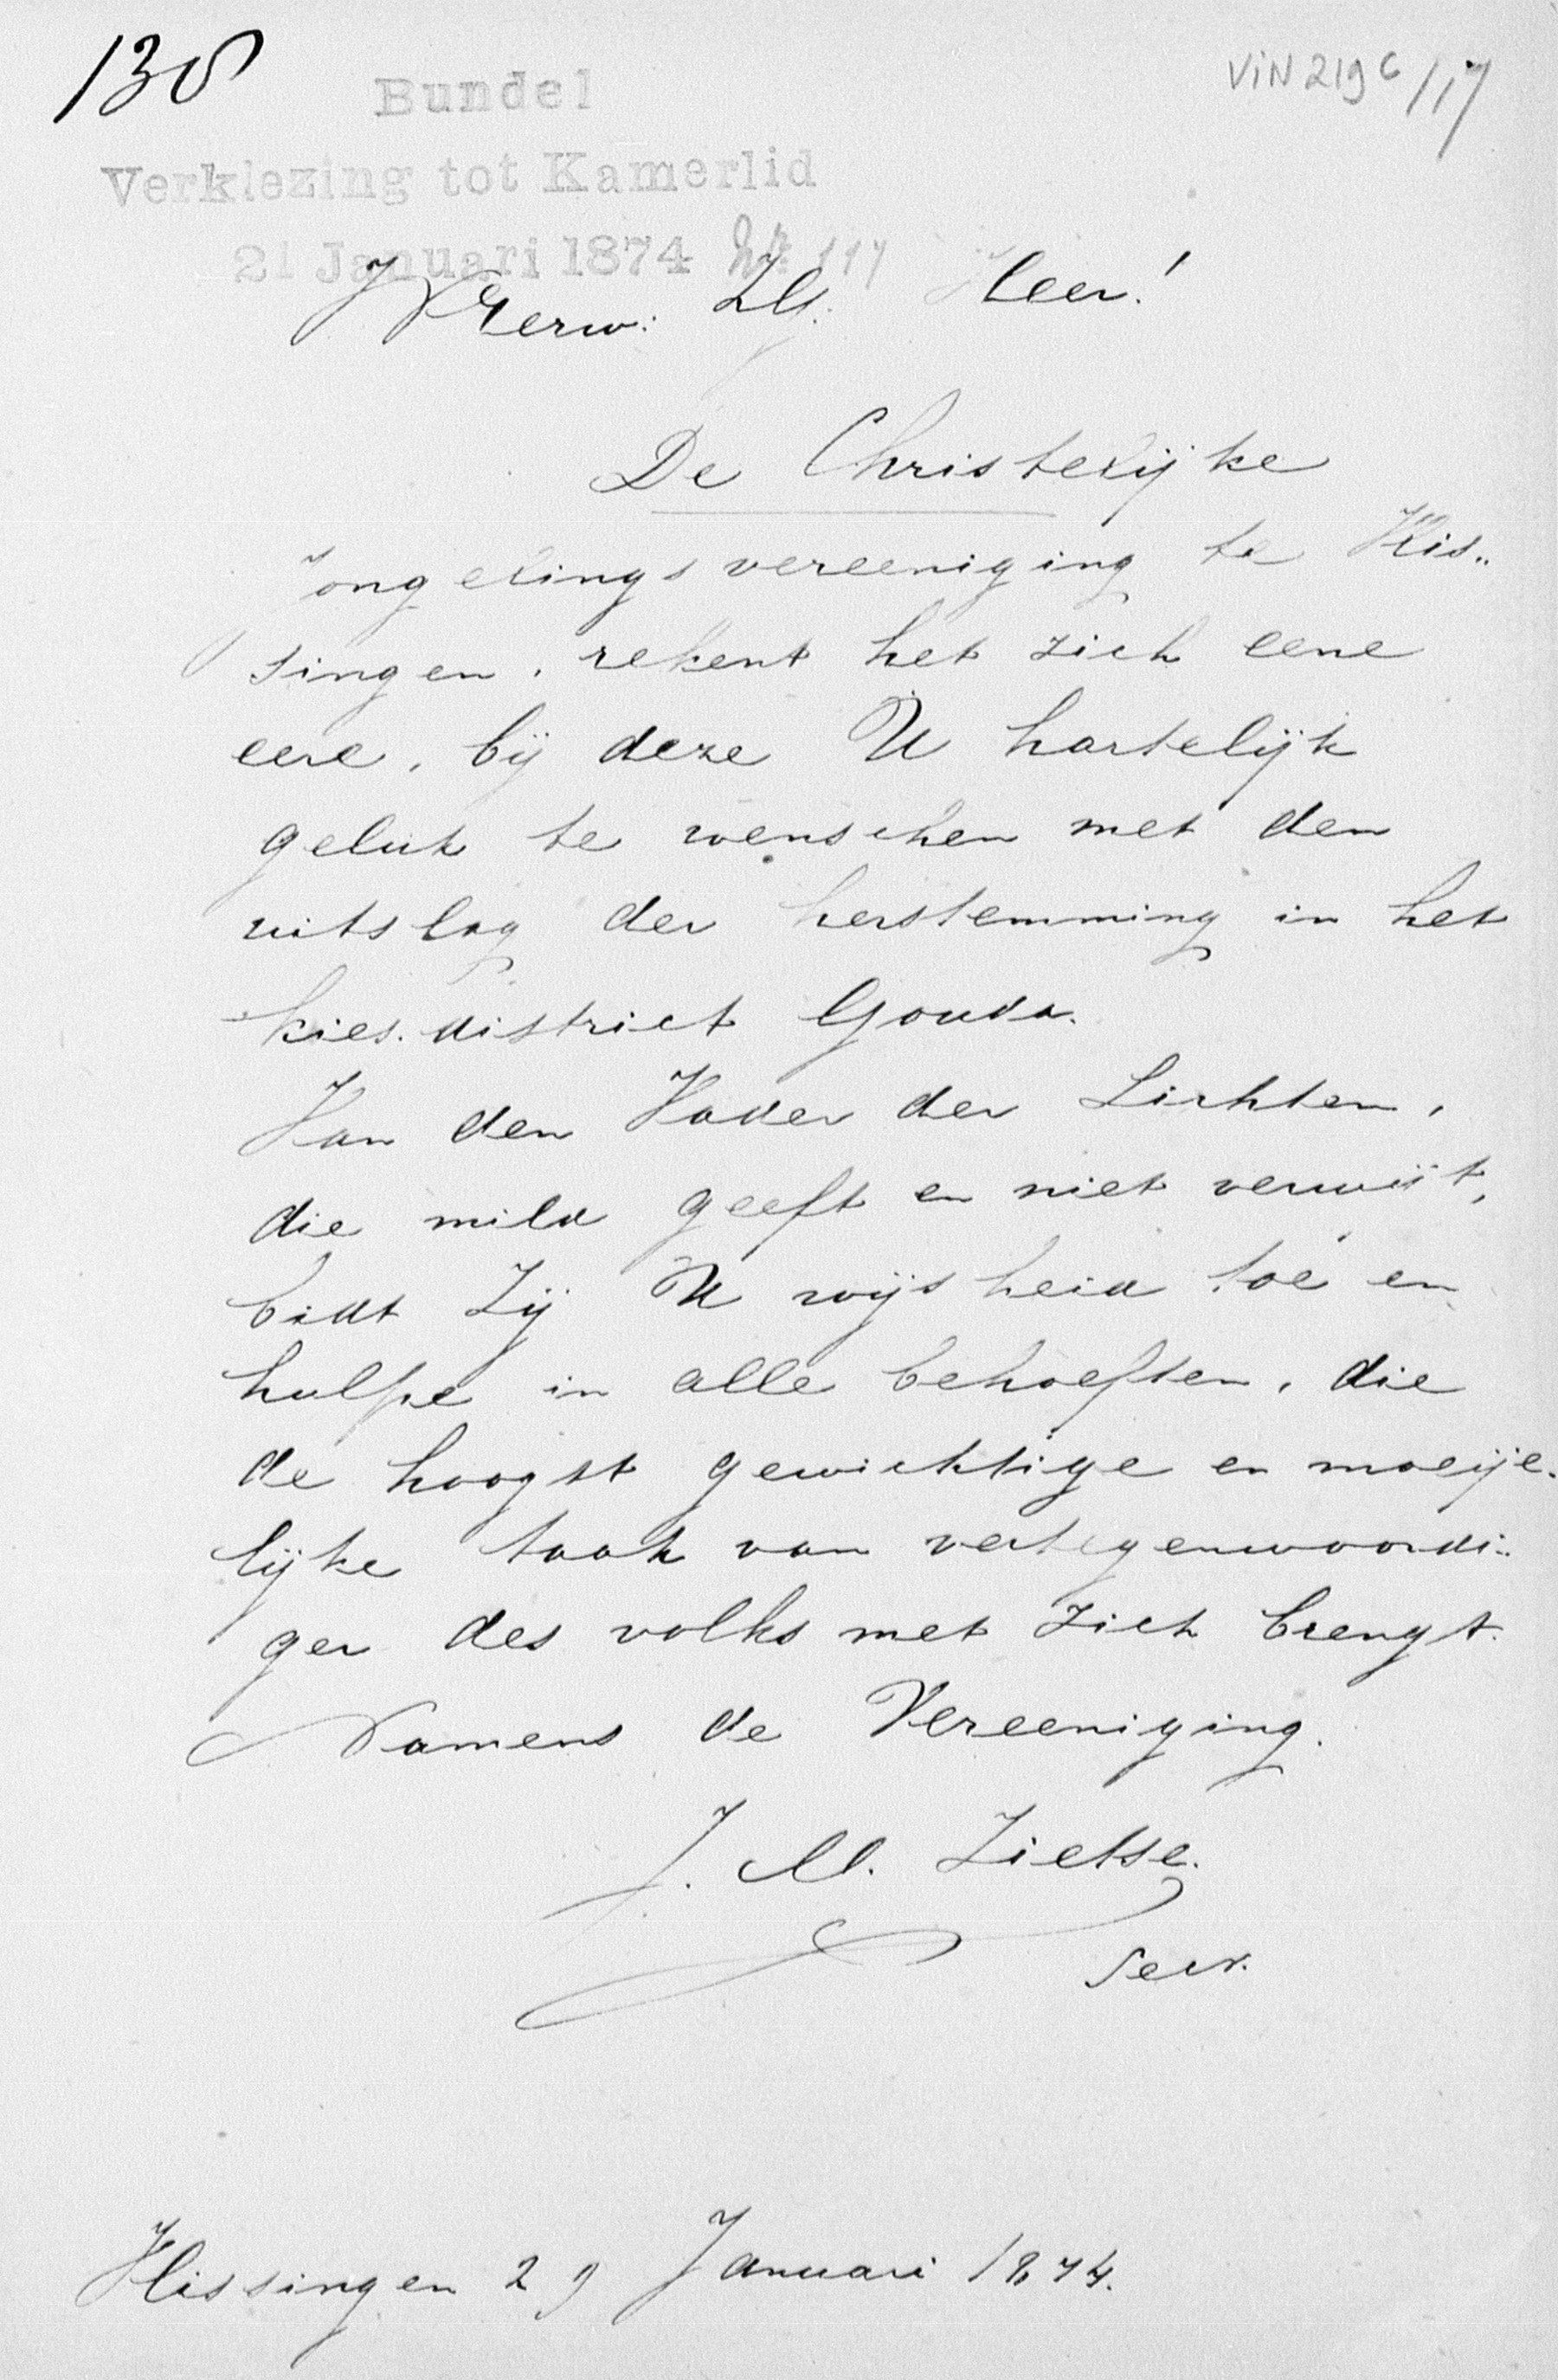 138
VIN 219 c/117
Bundel
Verkiezing tot Kamerlid
21 Januari 1874 No 117
WEerw: ZG. Heer!
De Christelijke
Jongelingsvereeniging te Vlis„
singen, rekent het zich eene
eere, bij deze U hartelijk
geluk te wenschen met den
uitslag der herstemming in het
kies.district Gouda.
Van den Vader der Lichten,
die mild geeft en niet verwijt,
bidt Zij U wijsheid toe en
hulpe in alle behoeften, die
de hoogst gewichtige en moeije-
lijke taak van vertegenwoordi-
ger des volks met zich brengt.
Namens de Vereeniging.
J. M. Zietse.
Secr.
Vlissingen 29 Januari 1874.